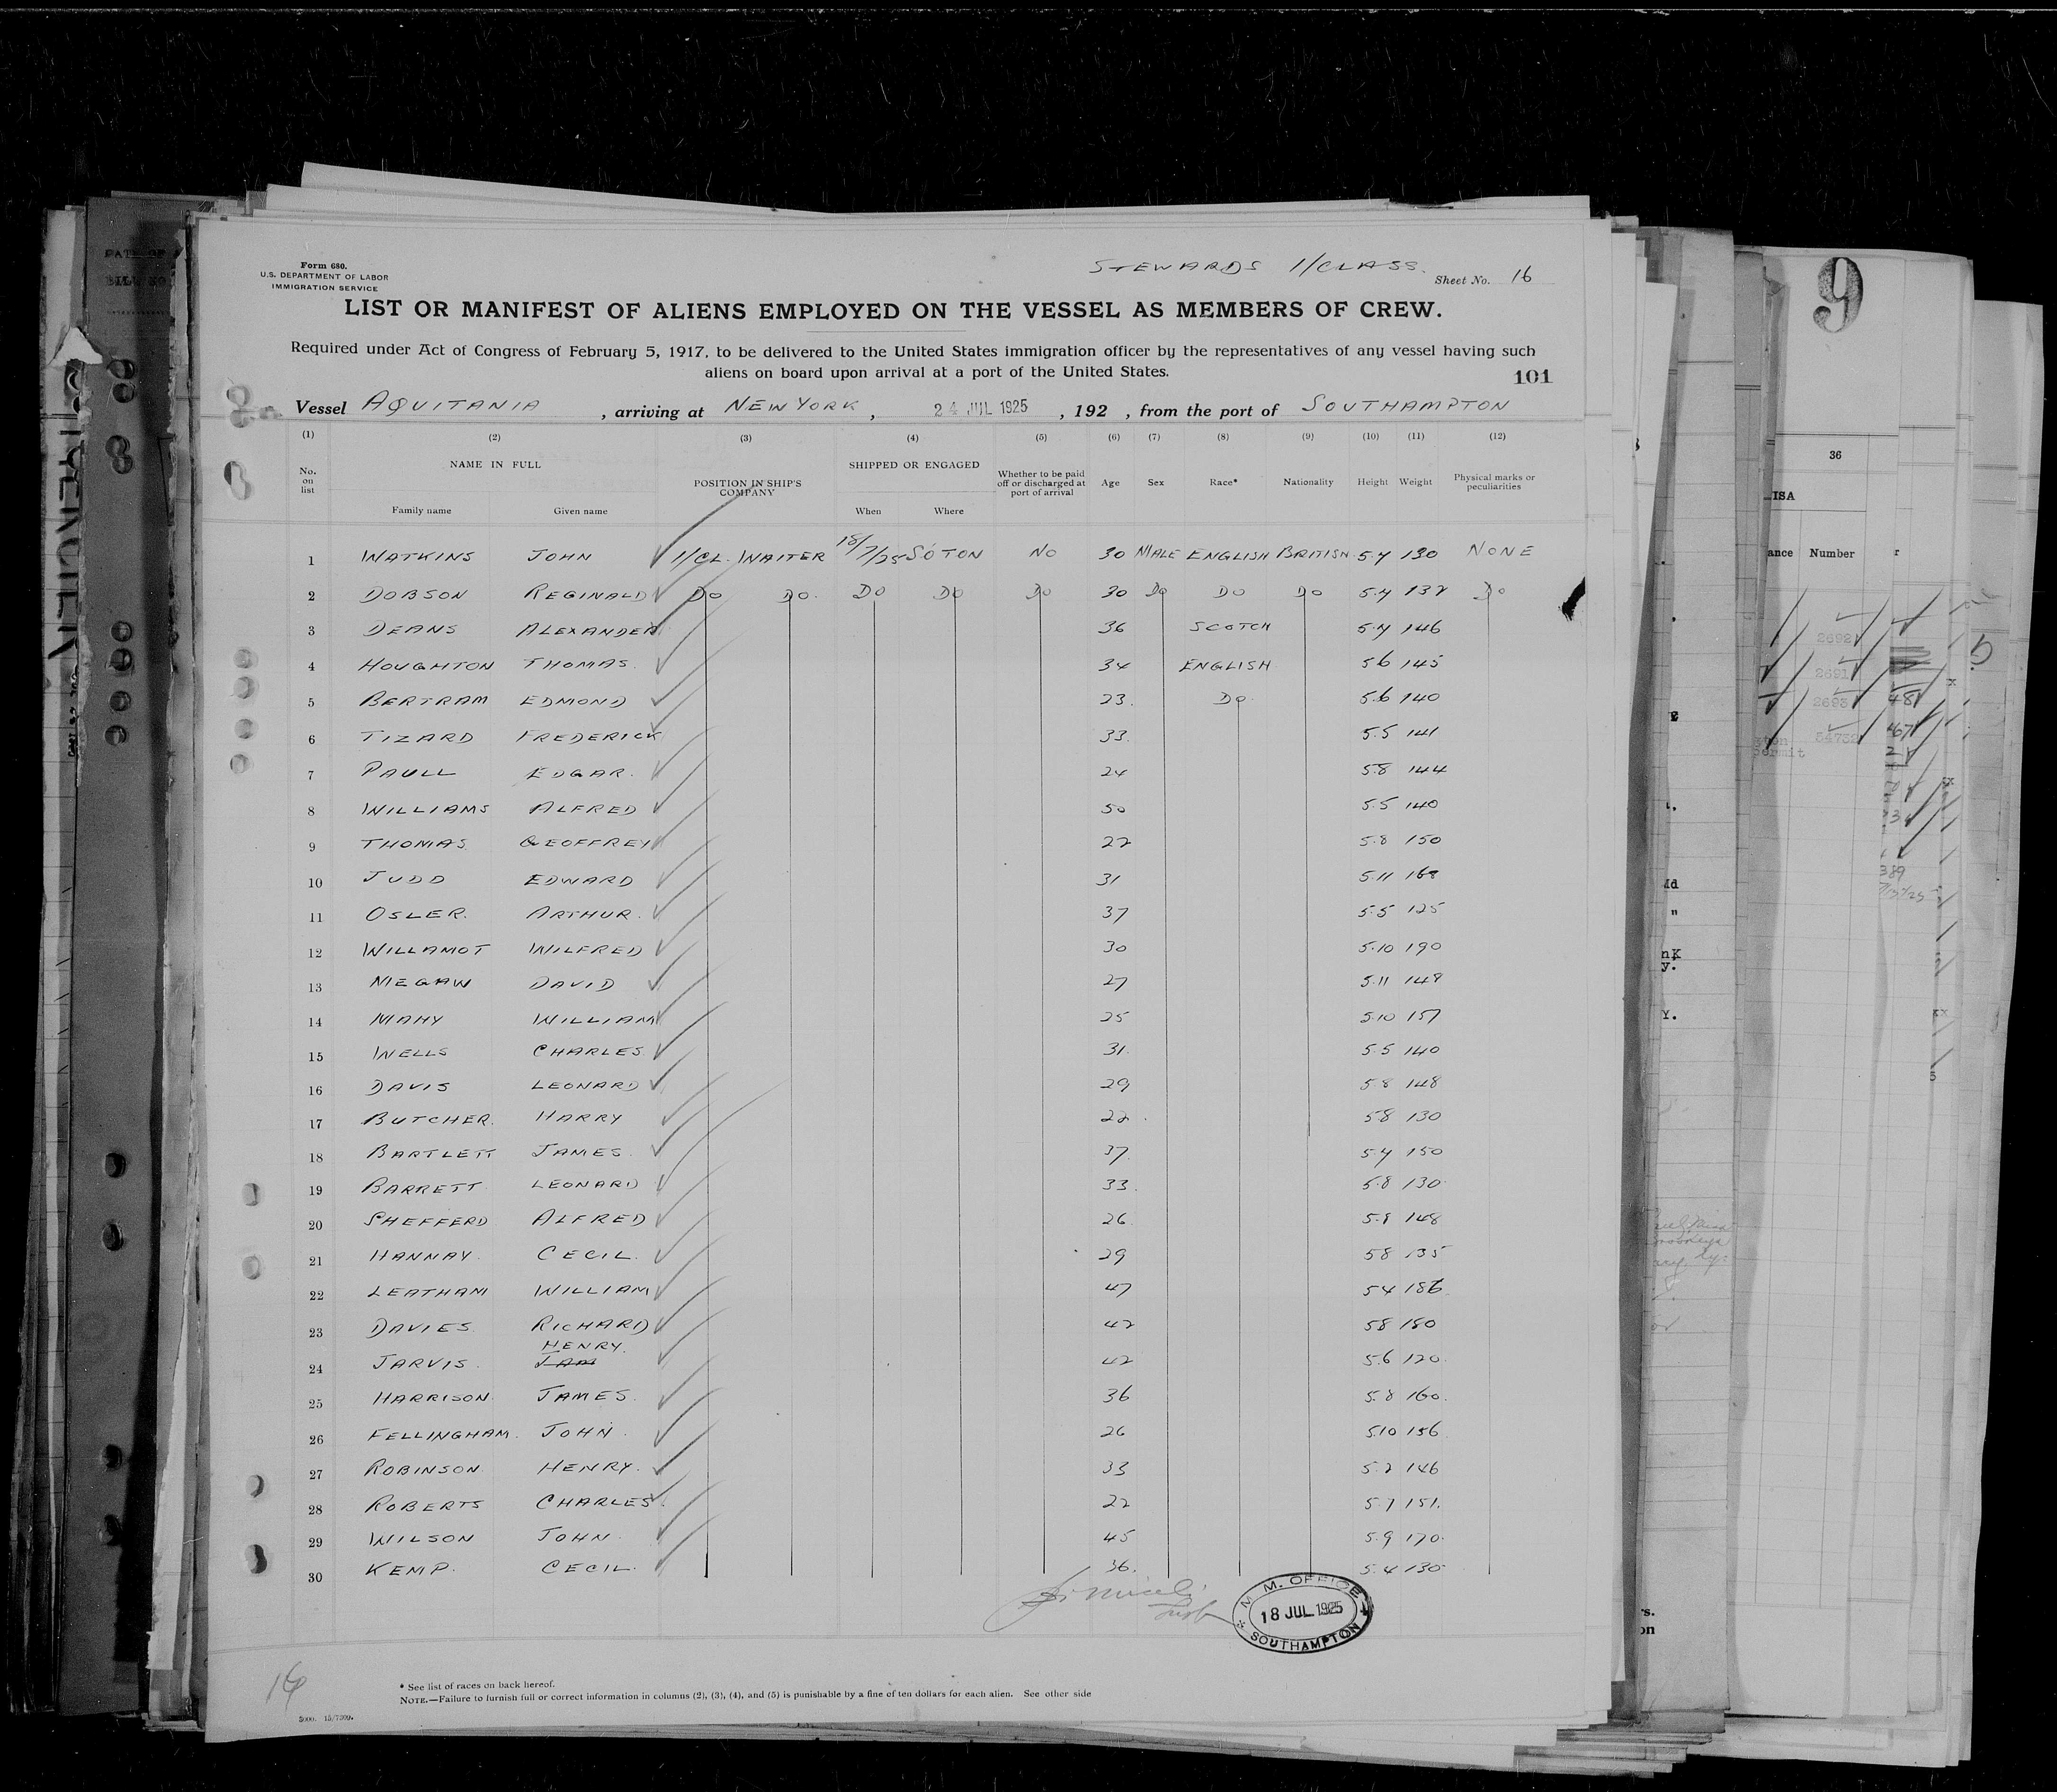 Form 680.
U.S. DEPARTMENT OF LABOR
IMMIGRATION SERVICE
STEWARDS 1/CLASS.
Sheet No. 16
LIST OR MANIFEST OF ALIENS EMPLOYED ON THE VESSEL AS MEMBERS OF CREW.
Required under Act of Congress of February 5, 1917, to be delivered to the United States immigration officer by the representatives of any vessel having such
aliens on board upon arrival at a port of the United States.
101
Vessel AQUITANIA, arriving at NEW YORK, 24 JUL 1925, 192 , from the port of SOUTHAMPTON
(1) (2) (3) (4) (5) (6) (7) (8) (9) (10) (11) (12)
No. on list NAME IN FULL POSITION IN SHIP'S COMPANY SHIPPED OR ENGAGED Whether to be paid off or discharged at port of arrival Age Sex Race* Nationality Height Weight Physical marks or peculiarities
Family name Given name When Where
1 WATKINS JOHN 1/CL. WAITER 18/7/25 SOTON NO 30 MALE ENGLISH BRITISH 5.4 130 NONE
2 DOBSON REGINALD DO DO. DO DO DO 30 DO DO DO 5.4 132 DO
3 DEANS ALEXANDER 36 SCOTCH 5.4 146
4 HOUGHTON THOMAS. 34 ENGLISH 5 6 145
5 BERTRAM EDMOND 23. DO. 5.6 140
6 TIZARD FREDERICK 33. 5.5 141
7 PAULL EDGAR. 24 5.8 144
8 WILLIAMS ALFRED 50 5.5 140
9 THOMAS GEOFFREY 22 5.8 150
10 JUDD EDWARD 31 5.11 168
11 OSLER. ARTHUR. 37 5.5 125
12 WILLAMOT WILFRED 30 5.10 190
13 MEGAW DAVID 27 5.11 149
14 MAHY WILLIAM 25 5.10 157
15 WELLS CHARLES 31. 5.5 140
16 DAVIS LEONARD 29 5.8 148
17 BUTCHER. HARRY 22. 5.8 130
18 BARTLETT JAMES. 37. 5.4 150
19 BARRETT LEONARD 33. 5.8 130
20 SHEFFERD ALFRED 26 5.9 148
21 HANNAY. CECIL. 29 5 8 135
22 LEATHAM WILLIAM 47 5 4 186
23 DAVIES RICHARD 42 5 8 180
HENRY.
24 JARVIS. JAM 42 5.6 120.
25 HARRISON. JAMES. 36 5.8 160.
26 FELLINGHAM. JOHN. 26 5.10 156
27 ROBINSON HENRY. 33 5.2 146
28 ROBERTS CHARLES. 22 5.7 151.
29 WILSON JOHN. 45 5.9 170.
30 KEMP. CECIL. 36. 5.4 130
M. M. OFFICE
18 JUL 1925
SOUTHAMPTON
16
* See list of races on back hereof.
NOTE.—Failure to furnish full or correct information in columns (2), (3), (4), and (5) is punishable by a fine of ten dollars for each alien. See other side
9
36
ISA
ance Number
2692
2691
2693
54732
48
67
permit
389